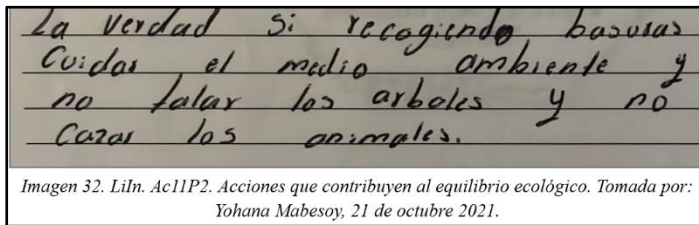 La verdad si recogiendo basuras
Cuidar el medio ambiente y
no talar los arboles y no
Cazar los animales.
Imagen 32. LiIn. Ac11P2. Acciones que contribuyen al equilibrio ecológico. Tomada por:
Yohana Mabesoy, 21 de octubre 2021.